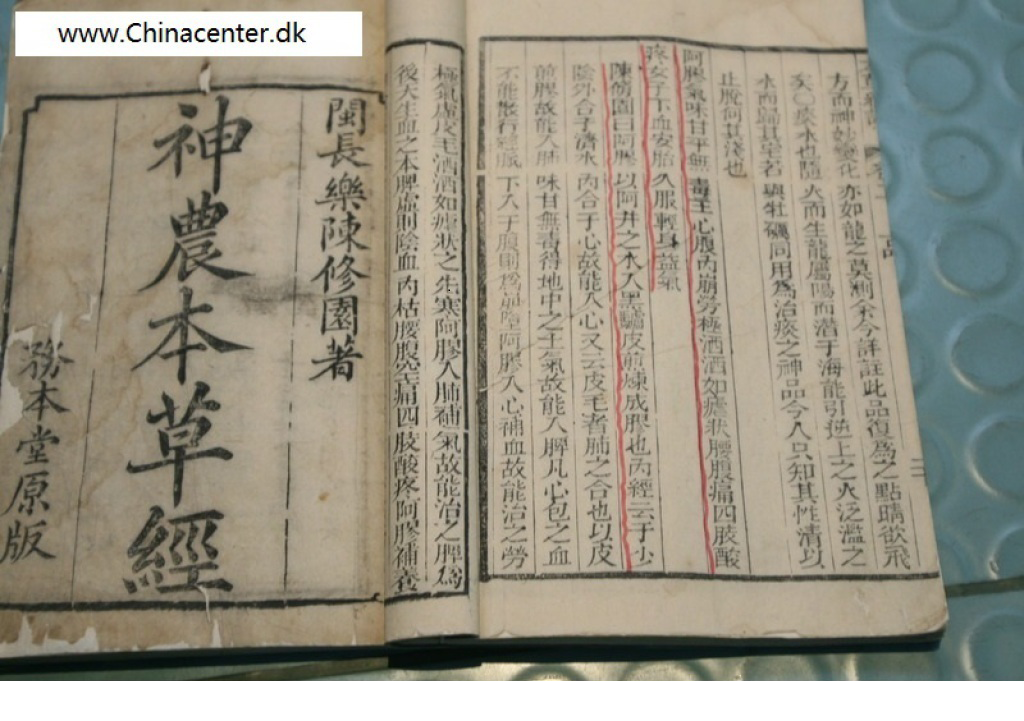 www.Chinacenter.dk
方而神妙變化亦如龍之莫測余今詳註此品復爲之點睛欲飛
矣○痰水也隨火而生龍屬陽而潛于海能引逆上之火泛濫之
水而歸其宅若與牡蠣同用爲治痰之神品今人只知其性濇以
止脫何其淺也
阿膠氣味甘平無毒主心腹內崩勞極洒洒如瘧狀腰腹痛四肢酸
疼女子下血安胎久服輕身益氣
陳修園曰阿膠以阿井之水入黑驢皮煎煉成膠也內經云手少
陰外合于濟水內合于心故能入心又云皮毛者肺之合也以皮
煎膠故能入肺味甘無毒得地中之土氣故能入脾凡心包之血
不能散行經脈下入于腹則爲崩墮阿膠入心補血故能治之勞
極氣虛皮毛洒洒如瘧狀之先寒阿膠入肺補氣故能治之脾爲
後天生血之本脾虛則陰血內枯腰腹空痛四肢酸疼阿膠補養
閩長樂陳修園著
神農本草經
務本堂原版